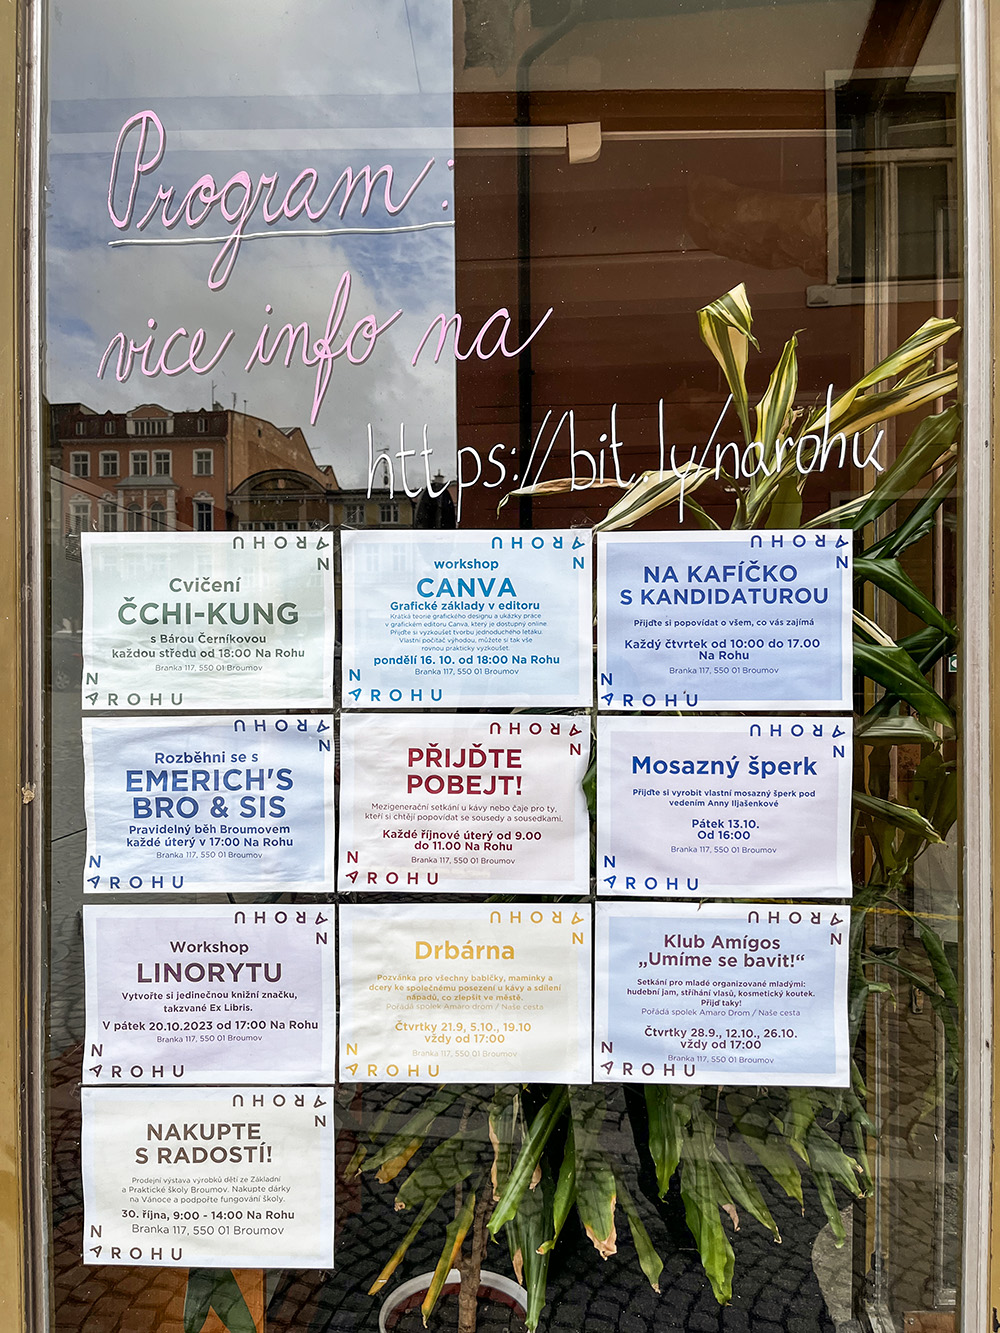 Program:
vice info na
https://bit.ly/narohu
NAROHU
Cvičení
ČCHI-KUNG
s Bárou Černíkovou
každou středu od 18:00 Na Rohu
Branka 117, 550 01 Broumov
NAROHU
NAROHU
workshop
CANVA
Grafické základy v editoru
Krátká teorie grafického designu a ukázky práce
v grafickém editoru Canva, který je dostupný online
Přijďte si vyzkoušet tvorbu jednoduchého letáku.
Vlastní počítač výhodou, můžete si tak vše
rovnou prakticky vyzkoušet.
pondělí 16. 10. od 18:00 Na Rohu
Branka 117, 550 01 Broumov
NAROHU
NAROHU
NA KAFÍČKO
S KANDIDATUROU
Přijďte si popovídat o všem, co vás zajímá
Každý čtvrtek od 10:00 do 17.00
Na Rohu
Branka 117, 550 01 Broumov
NAROHU
NAROHU
Rozběhni se s
EMERICH'S
BRO & SIS
Pravidelný běh Broumovem
každé úterý v 17:00 Na Rohu
Branka 117, 550 01 Broumov
NAROHU
NAROHU
PŘIJĎTE
POBEJT!
Mezigenerační setkání u kávy nebo čaje pro ty,
kteří si chtějí popovídat se sousedy a sousedkami.
Každé říjnové úterý od 9.00
do 11.00 Na Rohu
Branka 117, 550 01 Broumov
NAROHU
NAROHU
Mosazný šperk
Přijďte si vyrobit vlastní mosazný šperk pod
vedením Anny Iljašenkové
Pátek 13.10.
Od 16:00
Branka 117, 550 01 Broumov
NAROHU
NAROHU
Workshop
LINORYTU
Vytvořte si jedinečnou knižní značku,
takzvané Ex Libris.
V pátek 20.10.2023 od 17:00 Na Rohu
Branka 117, 550 01 Broumov
NAROHU
NAROHU
Drbárna
Pozvánka pro všechny babičky, maminky a
dcery ke společnému posezení u kávy a sdílení
nápadů, co zlepšit ve městě.
Pořádá spolek Amaro Drom / Naše cesta
Čtvrtky 21.9, 5.10., 19.10
vždy od 17:00
Branka 117, 550 01 Broumov
NAROHU
NAROHU
Klub Amígos
„Umíme se bavit!“
Setkání pro mladé organizované mladými:
hudební jam, stříhání vlasů, kosmetický koutek.
Přijď taky!
Pořádá spolek Amaro Drom / Naše cesta
Čtvrtky 28.9., 12.10., 26.10.
vždy od 17:00
Branka 117, 550 01 Broumov
NAROHU
NAROHU
NAKUPTE
S RADOSTÍ!
Prodejní výstava výrobků dětí ze Základní
a Praktické školy Broumov. Nakupte dárky
na Vánoce a podpořte fungování školy.
30. října, 9:00 - 14:00 Na Rohu
Branka 117, 550 01 Broumov
NAROHU